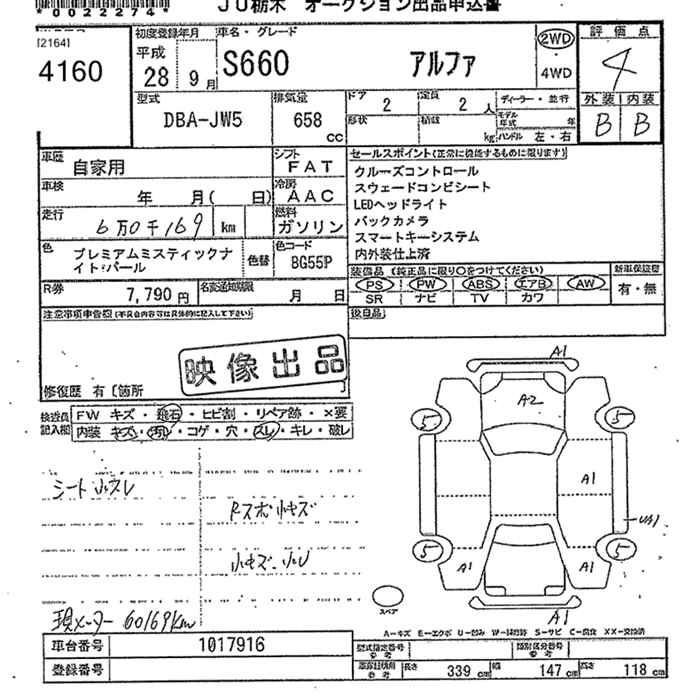 0022274
JU栃木 オークション出品申込書
[2164]
4160
初度登録年月
平成
28 9月
車名・グレード
S660 アルファ
2WD
・
4WD
評価点
4
型式
DBA-JW5
排気量
658
cc
ドア 2
定員 2 人
形状
積載 kg
ディーラー・並行
モデル年式 年
ハンドル 左・右
外装 内装
B B
車歴
自家用
シフト
FAT
車検
年 月( 日)
冷房
AAC
走行
6万0千169 km
燃料
ガソリン
色
プレミアムミスティックナイト・パール
色替
色コード
BG55P
R券
7,790円
名変通知期限
月 日
セールスポイント(正常に機能するものに限ります)
クルーズコントロール
スウェードコンビシート
LEDヘッドライト
バックカメラ
スマートキーシステム
内外装仕上済
装備品(純正品に限り○をつけてください)
PS PW ABS エアB AW
SR ナビ TV カワ
新車保証書
有・無
後日品
注意事項申告欄(不具合内容等は具体的に記入して下さい)
映像出品
修復歴 有〔箇所 〕
検査員
記入欄
FW キズ・飛石・ヒビ割・リペア跡・×要
内装 キズ・汚れ・コゲ・穴・スレ・キレ・破レ
シート小スレ
Rスポ小キズ
小キズ・小U
現メーター 60169km
A1
A2
5
5
A1
UA1
5
5
A1
A1
A1
スペア
A-キズ E-エクボ U-凹み W-補修跡 S-サビ C-腐食 XX-交換済
車台番号
1017916
登録番号
型式指定番号
参考
類別区分番号
参考
参考
長さ 339 cm
幅 147 cm
高さ 118 cm